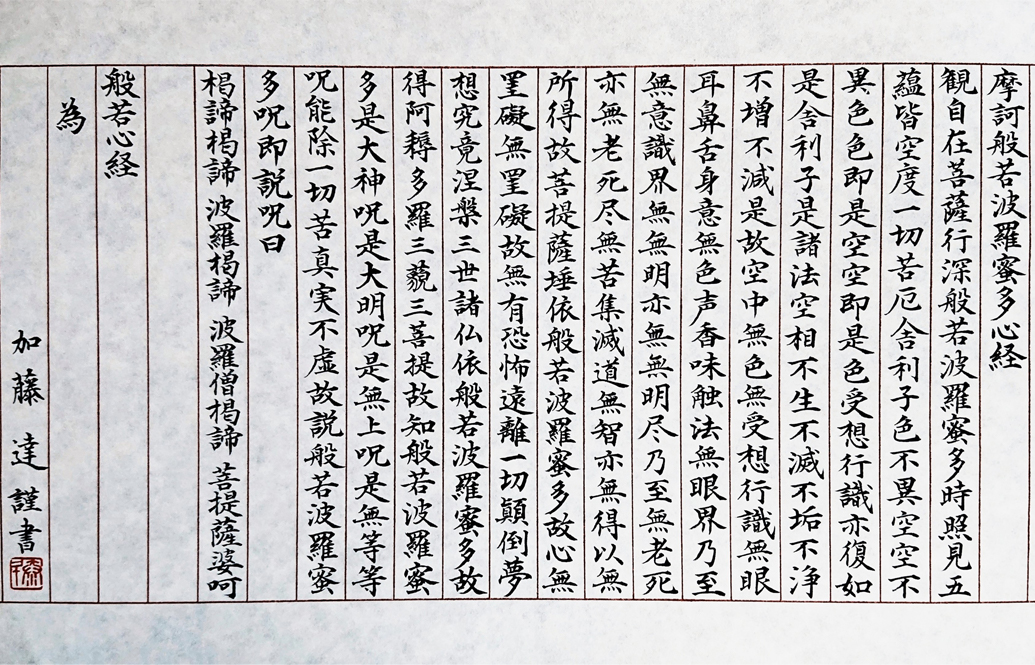 摩訶般若波羅蜜多心経
観自在菩薩行深般若波羅蜜多時照見五
蘊皆空度一切苦厄舎利子色不異空空不
異色色即是空空即是色受想行識亦復如
是舎利子是諸法空相不生不滅不垢不浄
不増不減是故空中無色無受想行識無眼
耳鼻舌身意無色声香味触法無眼界乃至
無意識界無無明亦無無明尽乃至無老死
亦無老死尽無苦集滅道無智亦無得以無
所得故菩提薩埵依般若波羅蜜多故心無
罣礙無罣礙故無有恐怖遠離一切顛倒夢
想究竟涅槃三世諸仏依般若波羅蜜多故
得阿耨多羅三藐三菩提故知般若波羅蜜
多是大神呪是大明呪是無上呪是無等等
呪能除一切苦真実不虚故説般若波羅蜜
多呪即説呪曰
楬諦楬諦 波羅楬諦 波羅僧楬諦 菩提薩婆呵
般若心経
為
加藤達謹書